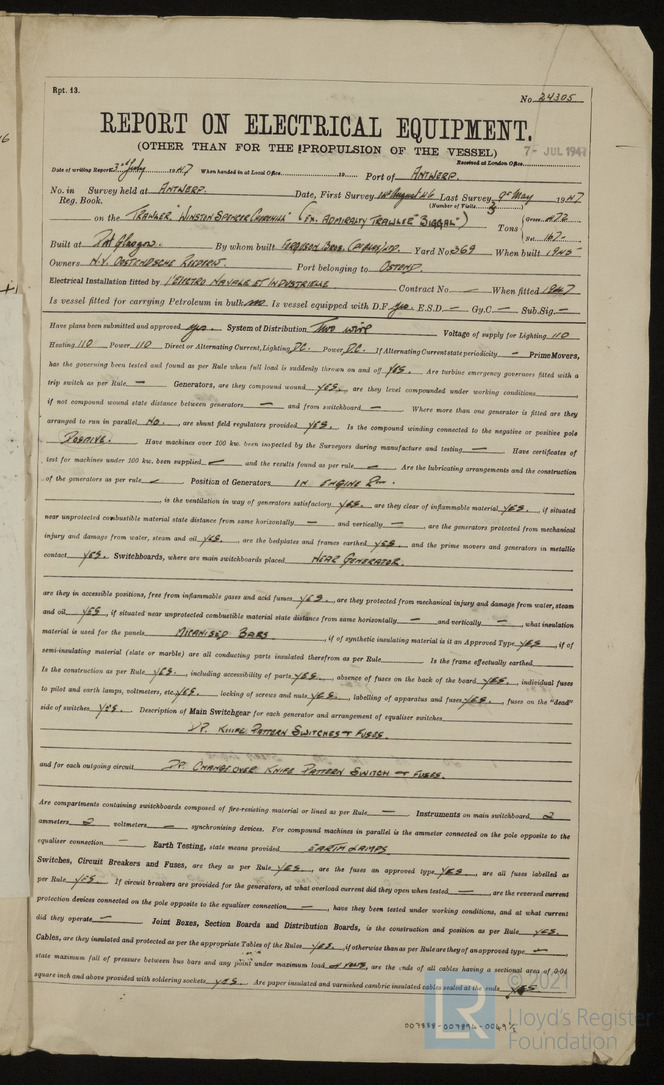 Rpt. 13.
No. 24305
REPORT ON ELECTRICAL EQUIPMENT.
(OTHER THAN FOR THE PROPULSION OF THE VESSEL)
7- JUL 1947
Received at London Office
Date of writing Report 3rd July 1947 When handed in at Local Office 19 Port of ANTWERP.
No. in Survey held at ANTWERP. Date, First Survey August 46 Last Survey 9th May 1947
Reg. Book. (Number of Visits 3)
on the TRAWLER "WINSTON SPENCER CHURCHILL" (EX. ADMIRALTY TRAWLER "BIGGAL") Tons { Gross 472
Net 167
Built at Port Glasgow. By whom built FERGUSON BROS. Yard No 369 When built 1945
Owners N.V. OOSTENDSCHE REEDERIJ. Port belonging to OSTEND
Electrical Installation fitted by L'ELECTRO NAVALE ET INDUSTRIELLE Contract No — When fitted 1947
Is vessel fitted for carrying Petroleum in bulk no Is vessel equipped with D.F. yes E.S.D. — Gy.C. — Sub.Sig. —
Have plans been submitted and approved yes. System of Distribution Two wire Voltage of supply for Lighting 110
Heating 110 Power 110 Direct or Alternating Current, Lighting DC. Power DC. If Alternating Current state periodicity — Prime Movers,
has the governing been tested and found as per Rule when full load is suddenly thrown on and off YES. Are turbine emergency governors fitted with a
trip switch as per Rule — Generators, are they compound wound YES., are they level compounded under working conditions
if not compound wound state distance between generators — and from switchboard — Where more than one generator is fitted are they
arranged to run in parallel NO., are shunt field regulators provided YES. Is the compound winding connected to the negative or positive pole
POSITIVE. Have machines over 100 kw. been inspected by the Surveyors during manufacture and testing — Have certificates of
test for machines under 100 kw. been supplied — and the results found as per rule — Are the lubricating arrangements and the construction
of the generators as per rule — Position of Generators IN ENGINE Rm.
, is the ventilation in way of generators satisfactory YES. are they clear of inflammable material YES., if situated
near unprotected combustible material state distance from same horizontally — and vertically —, are the generators protected from mechanical
injury and damage from water, steam and oil YES., are the bedplates and frames earthed YES. and the prime movers and generators in metallic
contact YES. Switchboards, where are main switchboards placed NEAR GENERATOR.
are they in accessible positions, free from inflammable gases and acid fumes YES., are they protected from mechanical injury and damage from water, steam
and oil YES, if situated near unprotected combustible material state distance from same horizontally — and vertically —, what insulation
material is used for the panels MICANISED BARS, if of synthetic insulating material is it an Approved Type YES, if of
semi-insulating material (slate or marble) are all conducting parts insulated therefrom as per Rule Is the frame effectually earthed
Is the construction as per Rule YES., including accessibility of parts YES., absence of fuses on the back of the board YES., individual fuses
to pilot and earth lamps, voltmeters, etc. YES., locking of screws and nuts YES., labelling of apparatus and fuses YES., fuses on the "dead"
side of switches YES. Description of Main Switchgear for each generator and arrangement of equaliser switches
DP. KNIFE PATTERN SWITCHES + FUSES.
and for each outgoing circuit DP. CHANGEOVER KNIFE PATTERN SWITCH + FUSES.
Are compartments containing switchboards composed of fire-resisting material or lined as per Rule — Instruments on main switchboard 2
ammeters 2 voltmeters — synchronising devices. For compound machines in parallel is the ammeter connected on the pole opposite to the
equaliser connection — Earth Testing, state means provided EARTH LAMPS
Switches, Circuit Breakers and Fuses, are they as per Rule YES., are the fuses an approved type YES., are all fuses labelled as
per Rule YES. If circuit breakers are provided for the generators, at what overload current did they open when tested —, are the reversed current
protection devices connected on the pole opposite to the equaliser connection —, have they been tested under working conditions, and at what current
did they operate — Joint Boxes, Section Boards and Distribution Boards, is the construction and position as per Rule YES.
Cables, are they insulated and protected as per the appropriate Tables of the Rules YES., if otherwise than as per Rule are they of an approved type —,
state maximum fall of pressure between bus bars and any point under maximum load VOLTS, are the ends of all cables having a sectional area of 0.04
square inch and above provided with soldering sockets YES. Are paper insulated and varnished cambric insulated cables sealed at the ends YES
© 2021
Lloyd's Register
Foundation
LR
007888-007894-0049 1/2